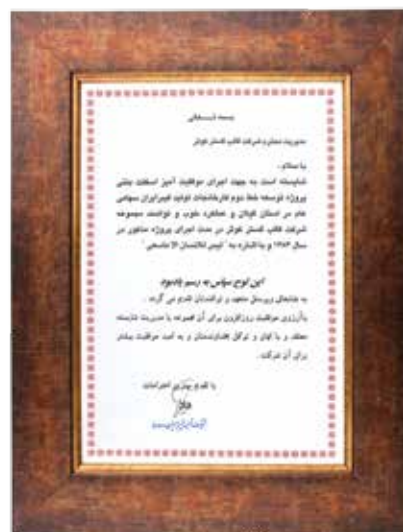 بسمه تعالی
مدیریت محترم شرکت قالب گستر کوش
با سلام ،
شایسته است به جهت اجرای موفقیت آمیز اسکلت بتنی
پروژه توسعه خط دوم کارخانجات تولید فیبر ایران سهامی
عام در استان گیلان و عملکرد خوب و توانمند مجموعه
شرکت قالب گستر کوش در مدت اجرای پروژه مذکور در
سال ۱۳۸۳ و با اشاره به " لیس للانسان الا ماسعی "
این لوح سپاس به رسم یادبود
به شما و پرسنل متعهد و تلاشتان تقدیم می گردد .
با آرزوی موفقیت روزافزون برای آن مجموعه با مدیریت شایسته
معتقد و با ایمان و توکل به خداوندمنان و به امید موفقیت بیشتر
برای آن شرکت .
با تقدیم بهترین احترامات